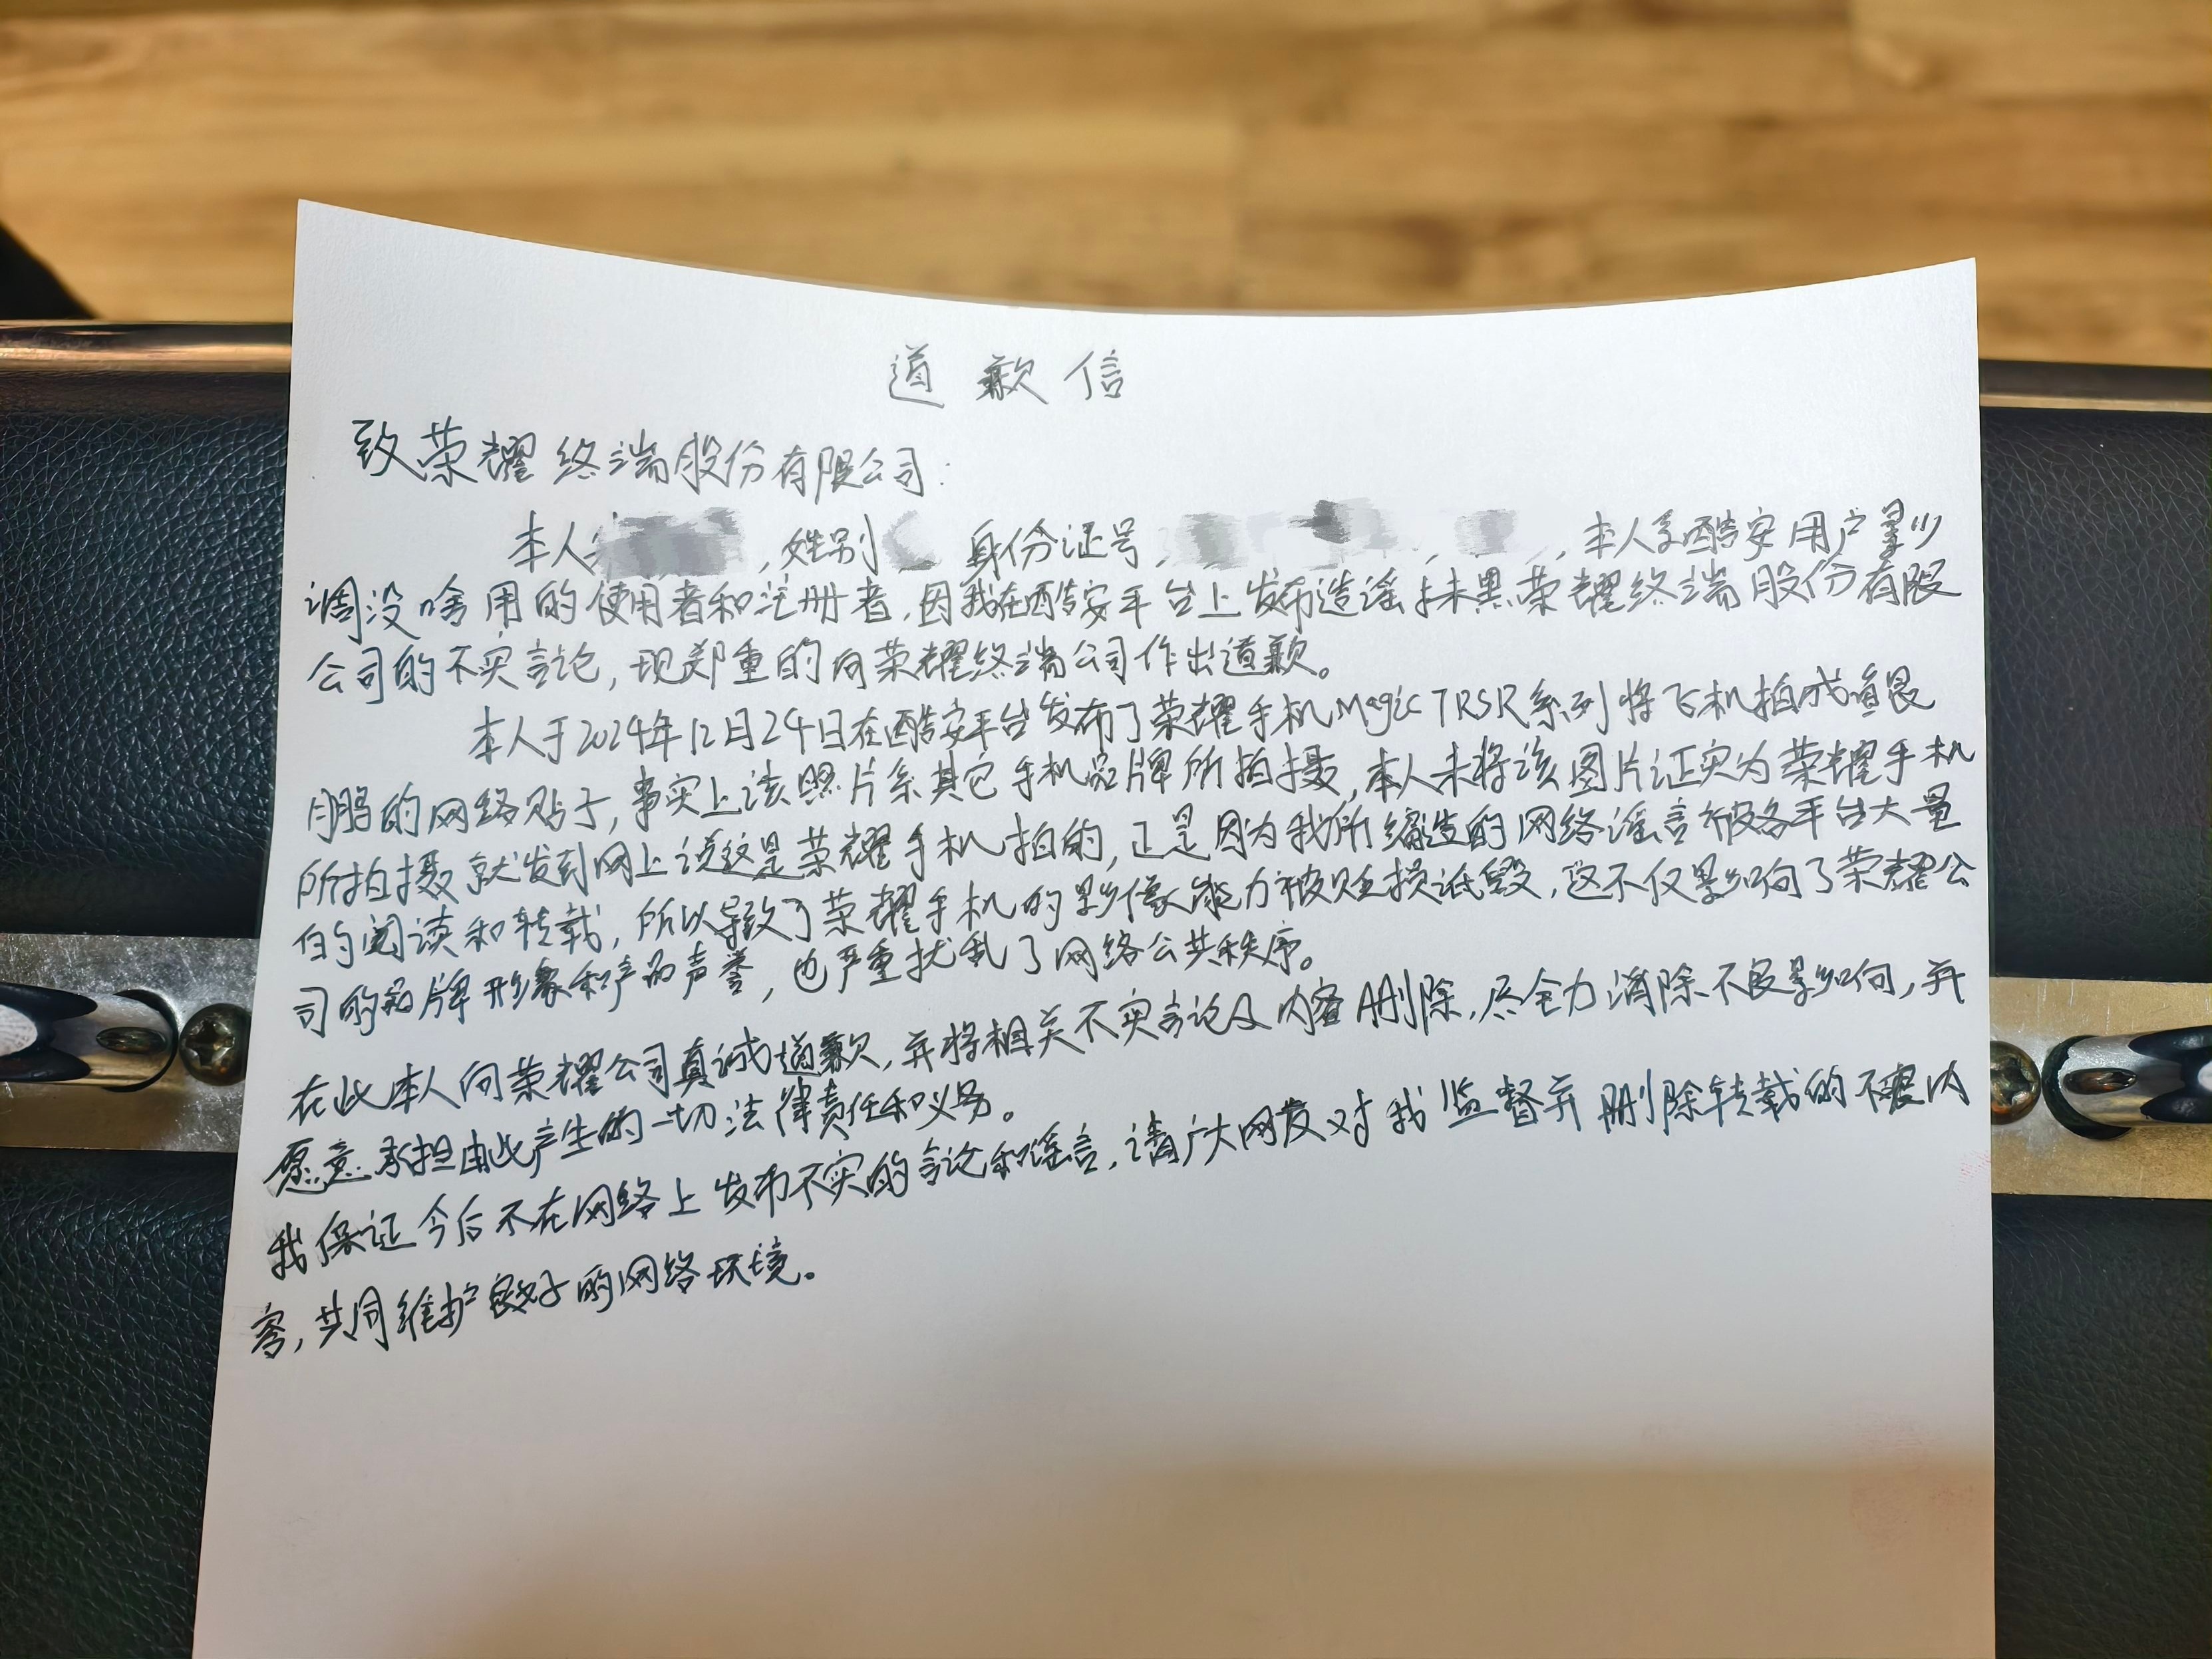 道歉信
致荣耀终端股份有限公司:
本人 ,姓别 身份证号, , , 本人系酷安用户
调没啥用的使用者和注册者,因我在酷安平台上发布造谣抹黑荣耀终端股份有限
公司的不实言论,现郑重的向荣耀终端公司作出道歉。
本人于2024年12月24日在酷安平台发布了荣耀手机Magic7RSR系列将飞机拍成
鹏的网络贴子,事实上该照片系其它手机品牌所拍摄,本人未将该图片证实为荣耀手机
所拍摄就发到网上说这是荣耀手机拍的,正是因为我所编造的网络谣言被各平台大量
的阅读和转载,所以导致了荣耀手机的影像能力被贬损诋毁,这不仅影响了荣耀公
司的品牌形象和产品声誉,也严重扰乱了网络公共秩序。
在此本人向荣耀公司真诚道歉,并将相关不实言论及内容删除,尽全力消除不良影响,并
愿意承担由此产生的一切法律责任和义务。
我保证今后不在网络上发布不实的言论和谣言,请广大网友对我监督并删除转载的不实内
容,共同维护良好的网络环境。